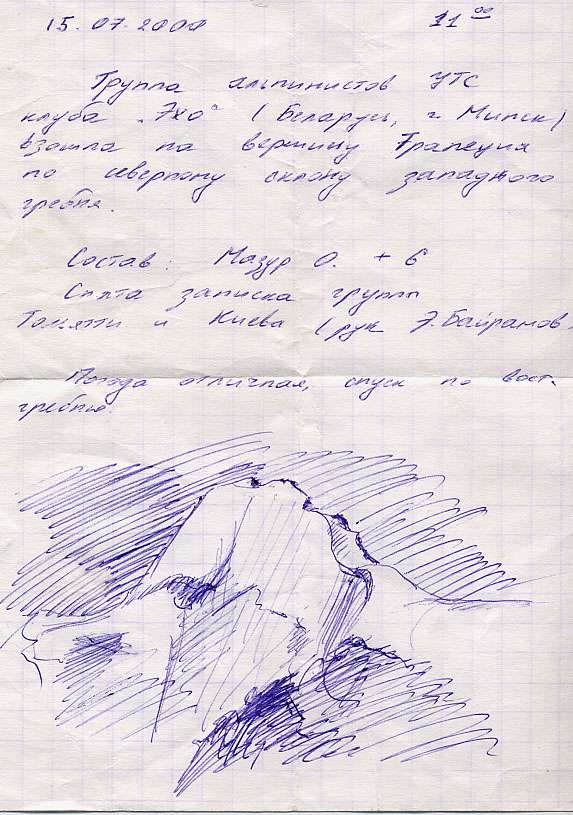 15.07.2000 11⁰⁰
Группа альпинистов УТС
клуба "Эхо" (Беларусь, г. Минск)
взошла на вершину Трапеция
по северному склону западного
гребня.
Состав: Мазур О. + 6
Снята записка группы
Тольятти и Киева (рук Э. Байрамов.
Погода отличная, спуск по вост.
гребню.